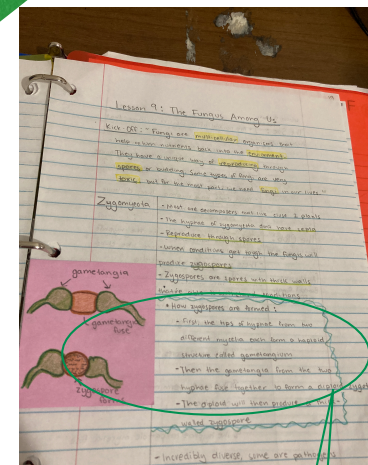 Lesson 9: The Fungus Among Us
Kick-Off: "Fungi are multicellular organisms that
help return nutrients back into the environment.
They have a unique way of reproducing through
spores or budding. Some types of fungi are very
toxic, but for the most part, we need fungi in our lives."
Zygomycota - Most are decomposers that live close 2 plants
- The hyphae of zygomycota don't have septa
- Reproduce through spores
- When conditions get tough the fungi will
produce zygospores
- Zygospores are spores with thick walls
conditions
* How zygospores are formed:
- First, the tips of hyphae from two
different mycelia each form a haploid
structure called gametangium
- Then the gametangia from the two
hyphae fuse together to form a diploid
- The diploid will then produce a thick
walled zygospore
- Incredibly diverse, some are pathogens
gametangia
gametangia
fuse
zygospore
forms